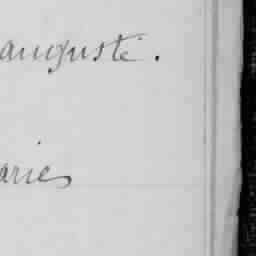 auguste.
aries